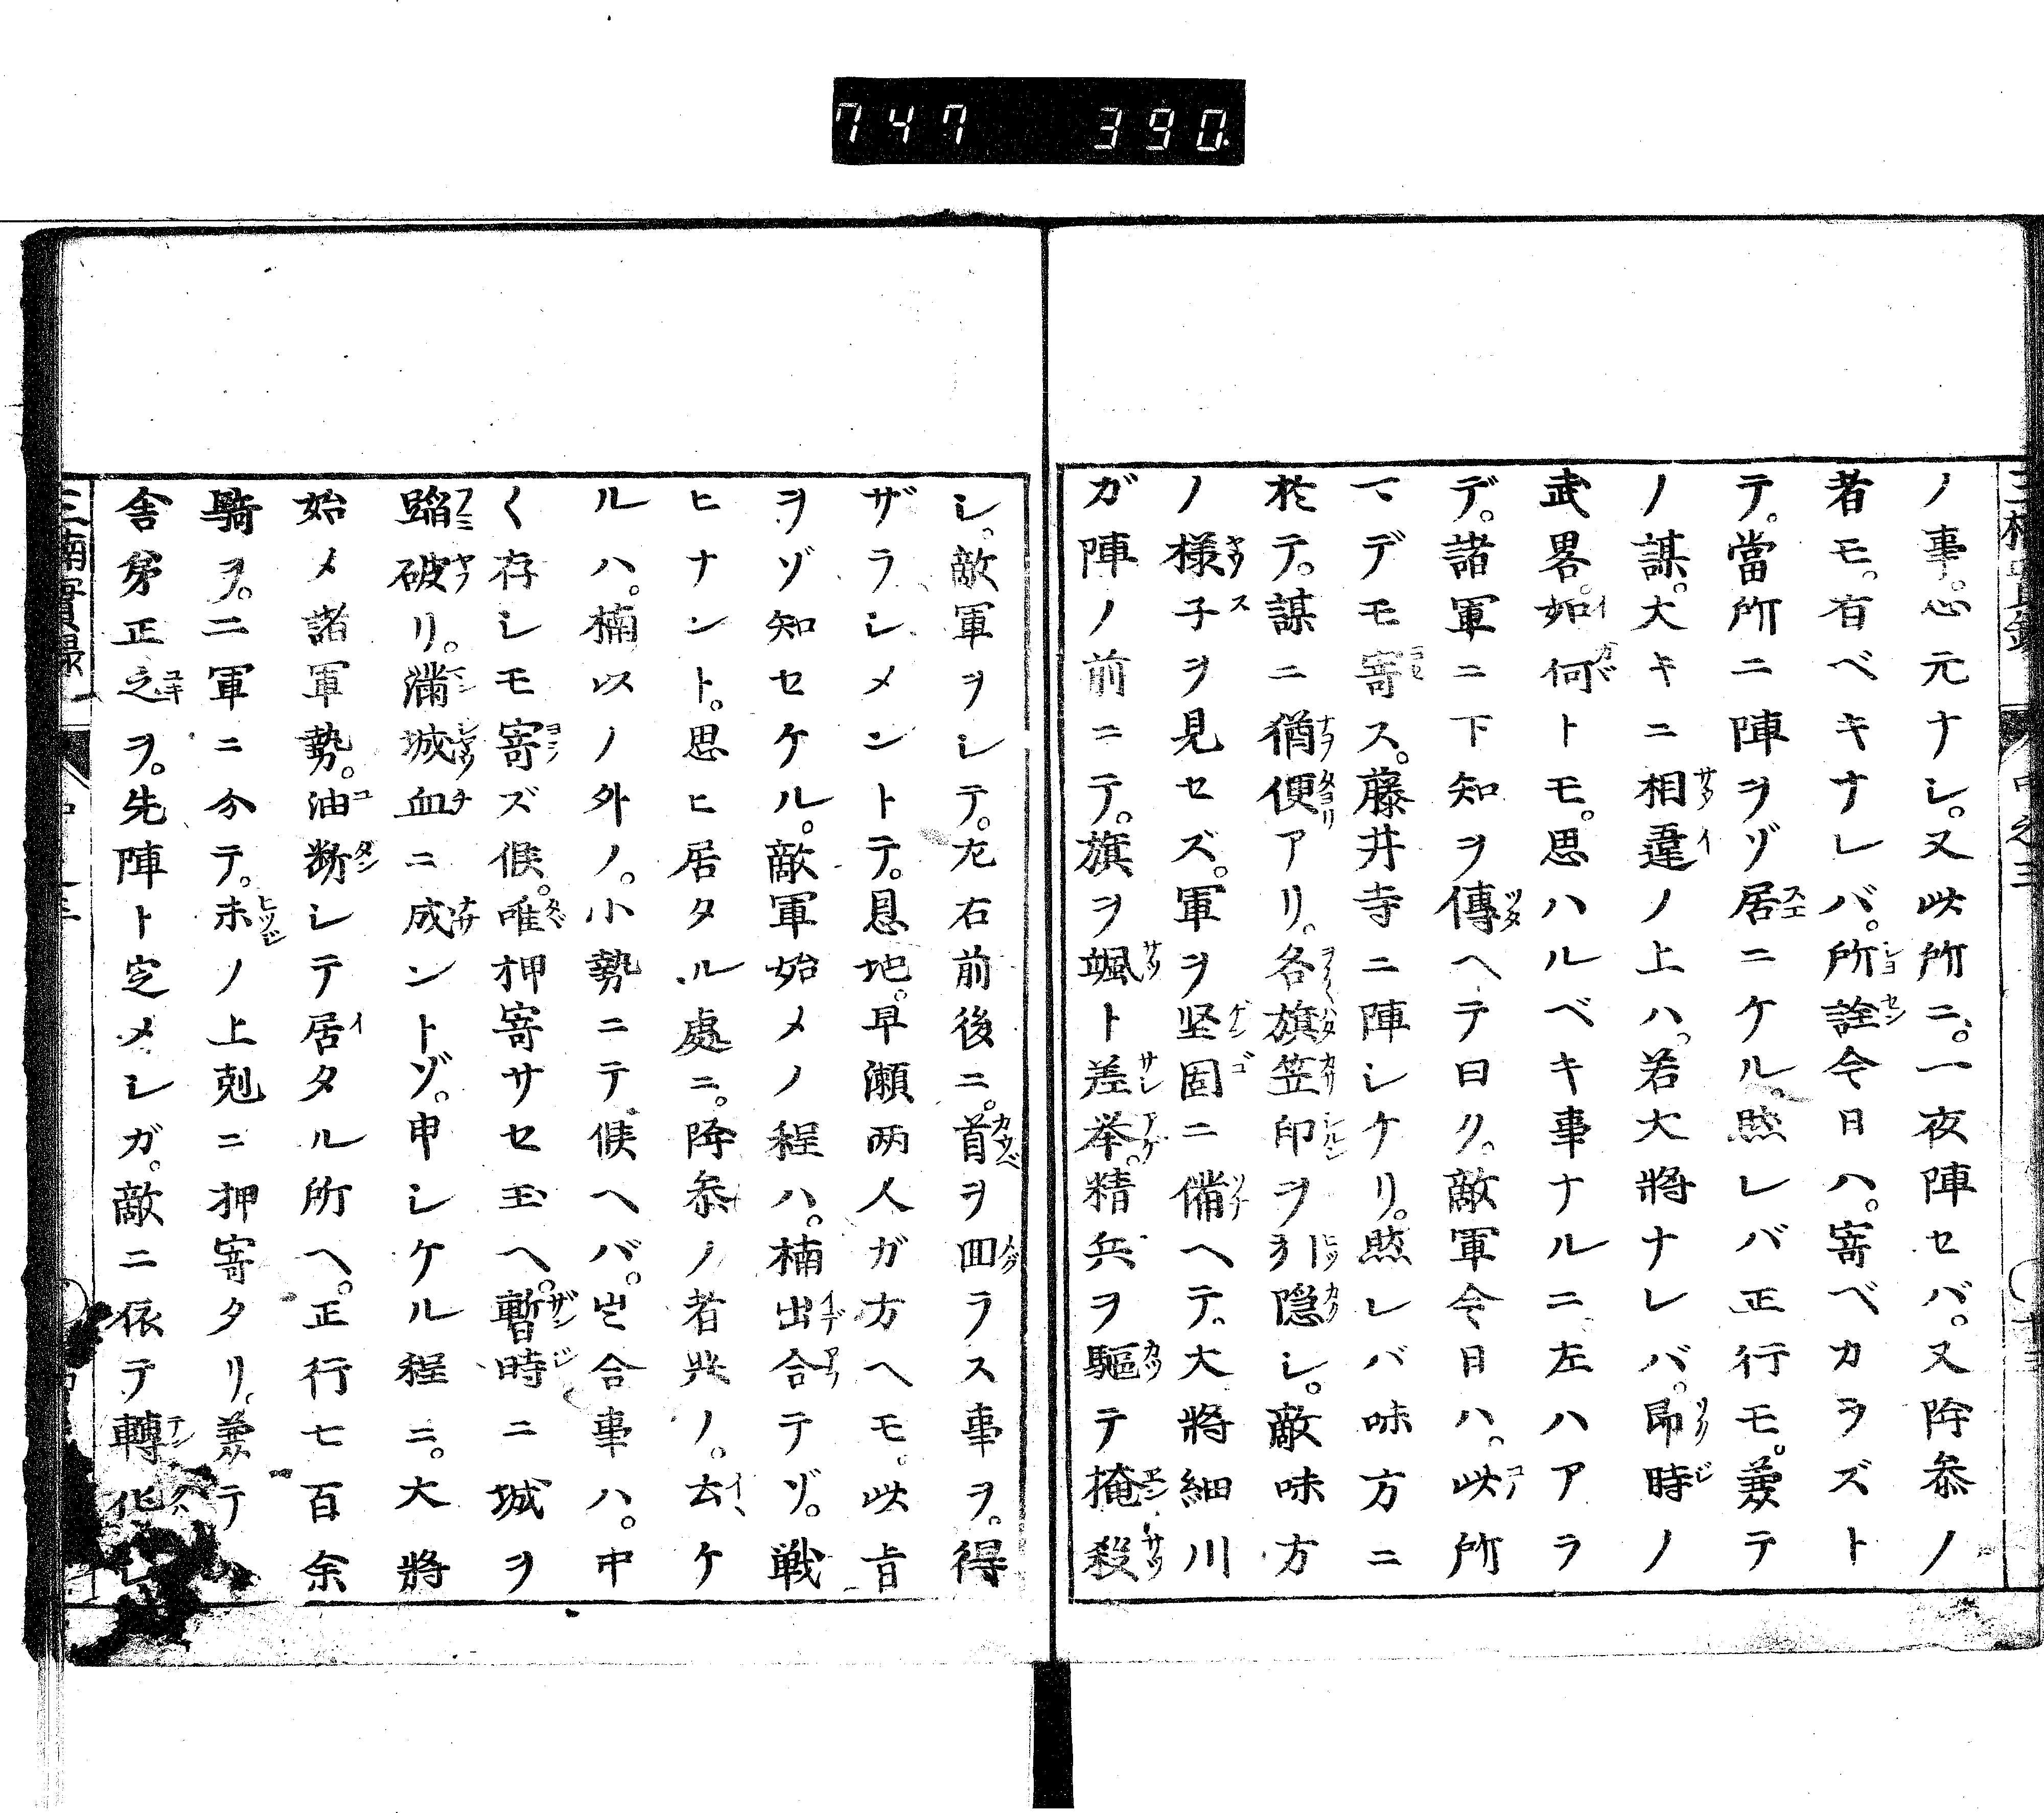 747 390
ノ事。心元ナシ。又此所ニ。一夜陣セバ。又降参ノ
者モ。有ベキナレバ。所詮今日ハ。寄ベカラズト
テ。當所ニ陣ヲゾ居ニケル。然レバ正行モ。兼テ
ノ謀。大キニ相違ノ上ハ。若大將ナレバ。即時ノ
武畧。如何トモ。思ハルベキ事ナルニ。左ハアラ
デ。諸軍ニ下知ヲ傳ヘテ曰ク。敵軍今日ハ。此所
マデモ寄ス。藤井寺ニ陣シケリ。然レバ味方ニ
於テ。謀ニ猶便アリ。各旗笠印ヲ引隠シ。敵味方
ノ様子ヲ見セズ。軍ヲ堅固ニ備ヘテ。大將細川
ガ陣ノ前ニテ。旗ヲ颯ト差挙。精兵ヲ驅テ掩殺
シ。敵軍ヲシテ。左右前後ニ。首ヲ回ラス事ヲ。得
ザラシメントテ。恩地。早瀬両人ガ方ヘモ。此旨
ヲゾ知セケル。敵軍始メノ程ハ。楠出合テゾ。戦
ヒナント。思ヒ居タル處ニ。降参ノ者共ノ。云ケ
ルハ。楠以ノ外ノ。小勢ニテ候ヘバ。出合事ハ。中
〱存シモ寄ズ候。唯押寄サセ玉ヘ。暫時ニ城ヲ
蹈破リ。満城血ニ成ントゾ。申シケル程ニ。大將
始メ諸軍勢。油断シテ居タル所ヘ。正行七百余
騎ヲ。二軍ニ分テ。未ノ上剋ニ押寄タリ。兼テ
舎弟正之ヲ。先陣ト定メシガ。敵ニ依テ轉化シ
三楠實録